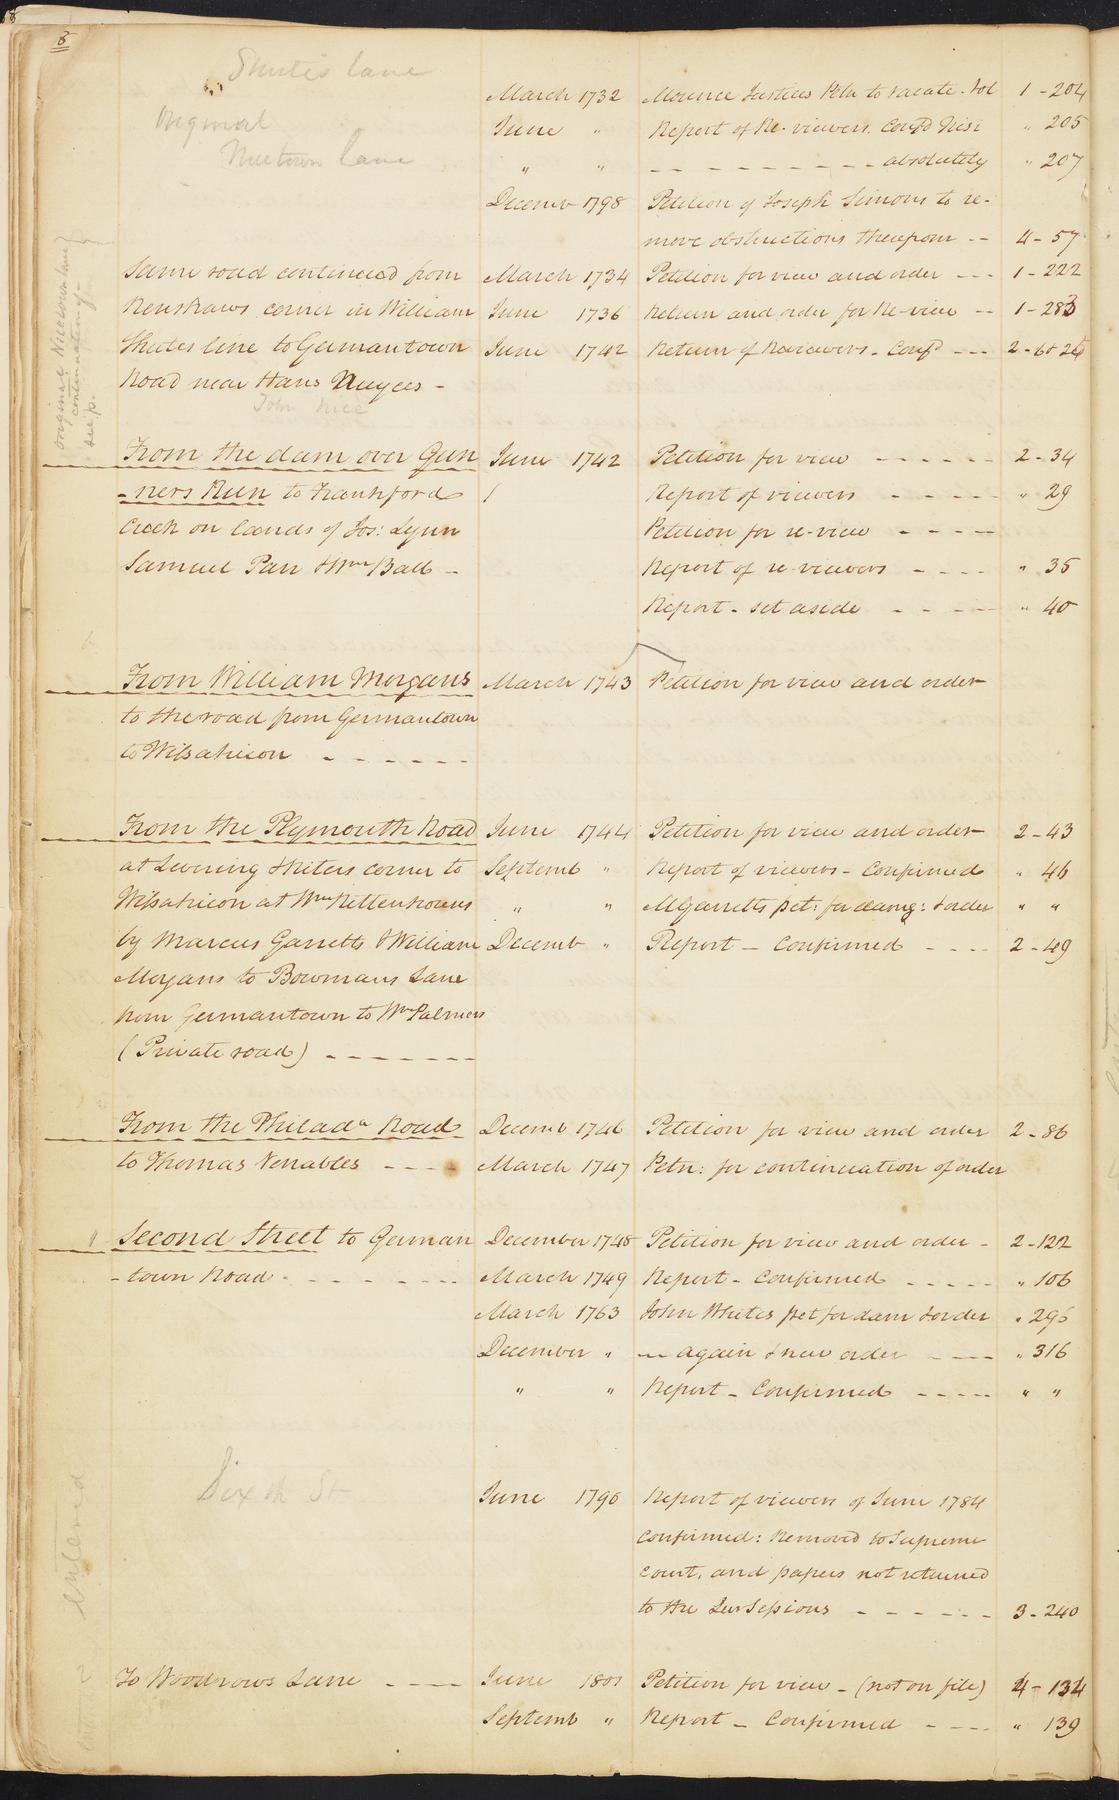 8
Shute's lane
March 1732 Mource Justices Petn to vacate. 1 - 204
Original
June " Report of Re-viewers. Confd Nisi " 205
Nicetown lane
" " — — — — — — absolutely " 207
Decemb 1798 Petition of Joseph Simons to re-
move obstructions thereupon -- 4 - 57
Same road continued from March 1734 Petition for view and order --- 1 - 222
Renshaws corner in William June 1736 Return and order for Re-view -- 1 - 283
Shutes line to Germantown June 1742 Return of Reviewers - Confd --- 2 - 6 & 26
Road near Hans Nuyces -
John Nice
original Nicetown lane for
continuation of
see p.
From the dam over Gun June 1742 Petition for view - - - - - - 2 - 34
-ners Run to Frankford Report of viewers - - - - - " 29
Creek on lands of Jos: Lynn Petition for re-view - - - - -
Samuel Parr & Wm Ball - Report of re-viewers - - - - " 35
Report - set aside - - - - - " 40
From William Morgans March 1743 Petition for view and order
to the road from Germantown
to Wissahicon - - - - - -
From the Plymouth Road June 1744 Petition for view and order 2 - 43
at Levering & Riters corner to Septemb " Report of viewers - Confirmed " 46
Wissahicon at Wm Rittenhouses " " M Garretts pet: for damg: & order " "
by Marcus Garretts & William Decemb " Report - Confirmed - - - - 2 - 49
Morgans to Bowmans Lane
from Germantown to Wm Palmers
(Private road) - - - - - - -
From the Philada Road Decemb 1746 Petition for view and order 2 - 86
to Thomas Venables - - - - March 1747 Petn: for continuation of order
Second Street to German December 1748 Petition for view and order - 2 - 122
-town Road - - - - - - - - March 1749 Report - Confirmed - - - - - " 106
March 1763 John Whites pet for dam & order " 296
December " — again & new order - - - - " 316
" " Report - Confirmed - - - - - " "
Sixth St
Entered
June 1790 Report of viewers of June 1784
confirmed: Removed to Supreme
Court, and papers not returned
to the Qur Sessions - - - - - - 3 - 240
To Woodrows Lane - - - - June 1801 Petition for view - (not on file) 4 - 134
Septemb " Report - Confirmed - - - - " 139